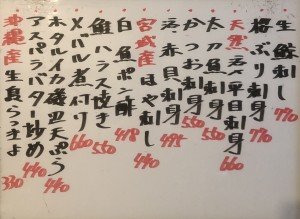 刺し 770
桜ぶり刺身 770
天然 平目刺身 660
太刀魚刺身
かつお刺身 550
赤貝刺身 495
宮城産 ほや刺し 440
白魚ポン酢 418
鮭ハラス焼き 550
メバル煮付け 660
ホタルイカ磯辺天ぷら 440
アスパラバター炒め 440
沖縄産 生島らっきょ 330